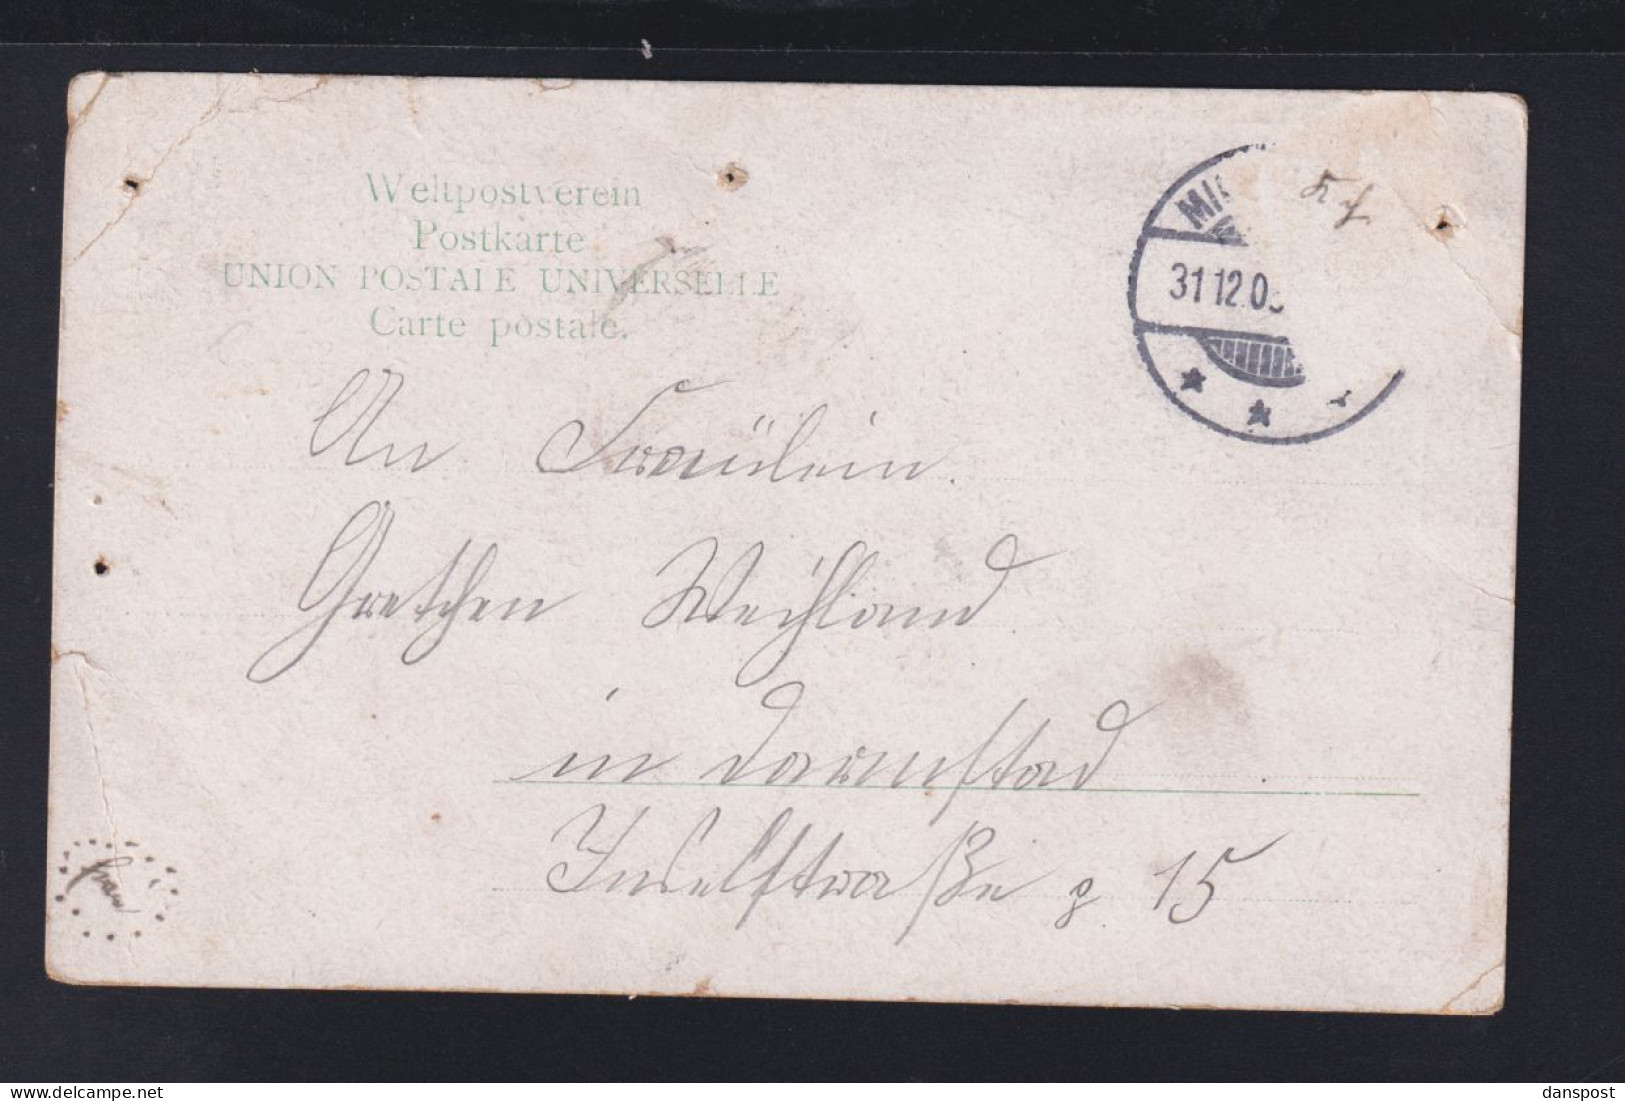 Weltpostverein
Postkarte
UNION POSTALE UNIVERSELLE
Carte postale.
31 12.0
An Fräulein.
Gretchen Weihland
in Darmstad
Inselstraße 15
danspost